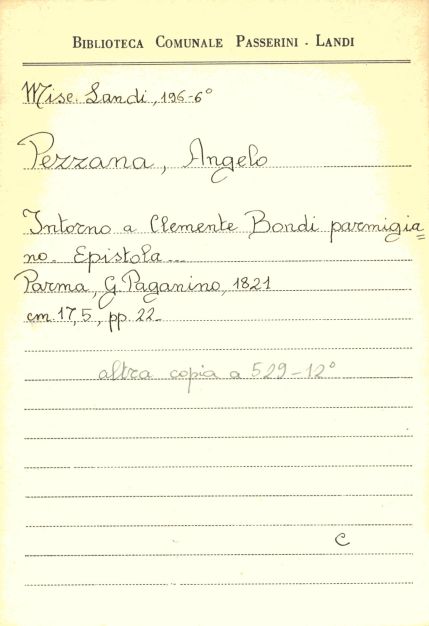 BIBLIOTECA COMUNALE PASSERINI - LANDI
Misc. Landi, 196-6°
Pezzana, Angelo
Intorno a Clemente Bondi parmigia=
no. Epistola...
Parma, G. Paganino, 1821
cm. 17,5, pp. 22.
altra copia a 529-12°
C